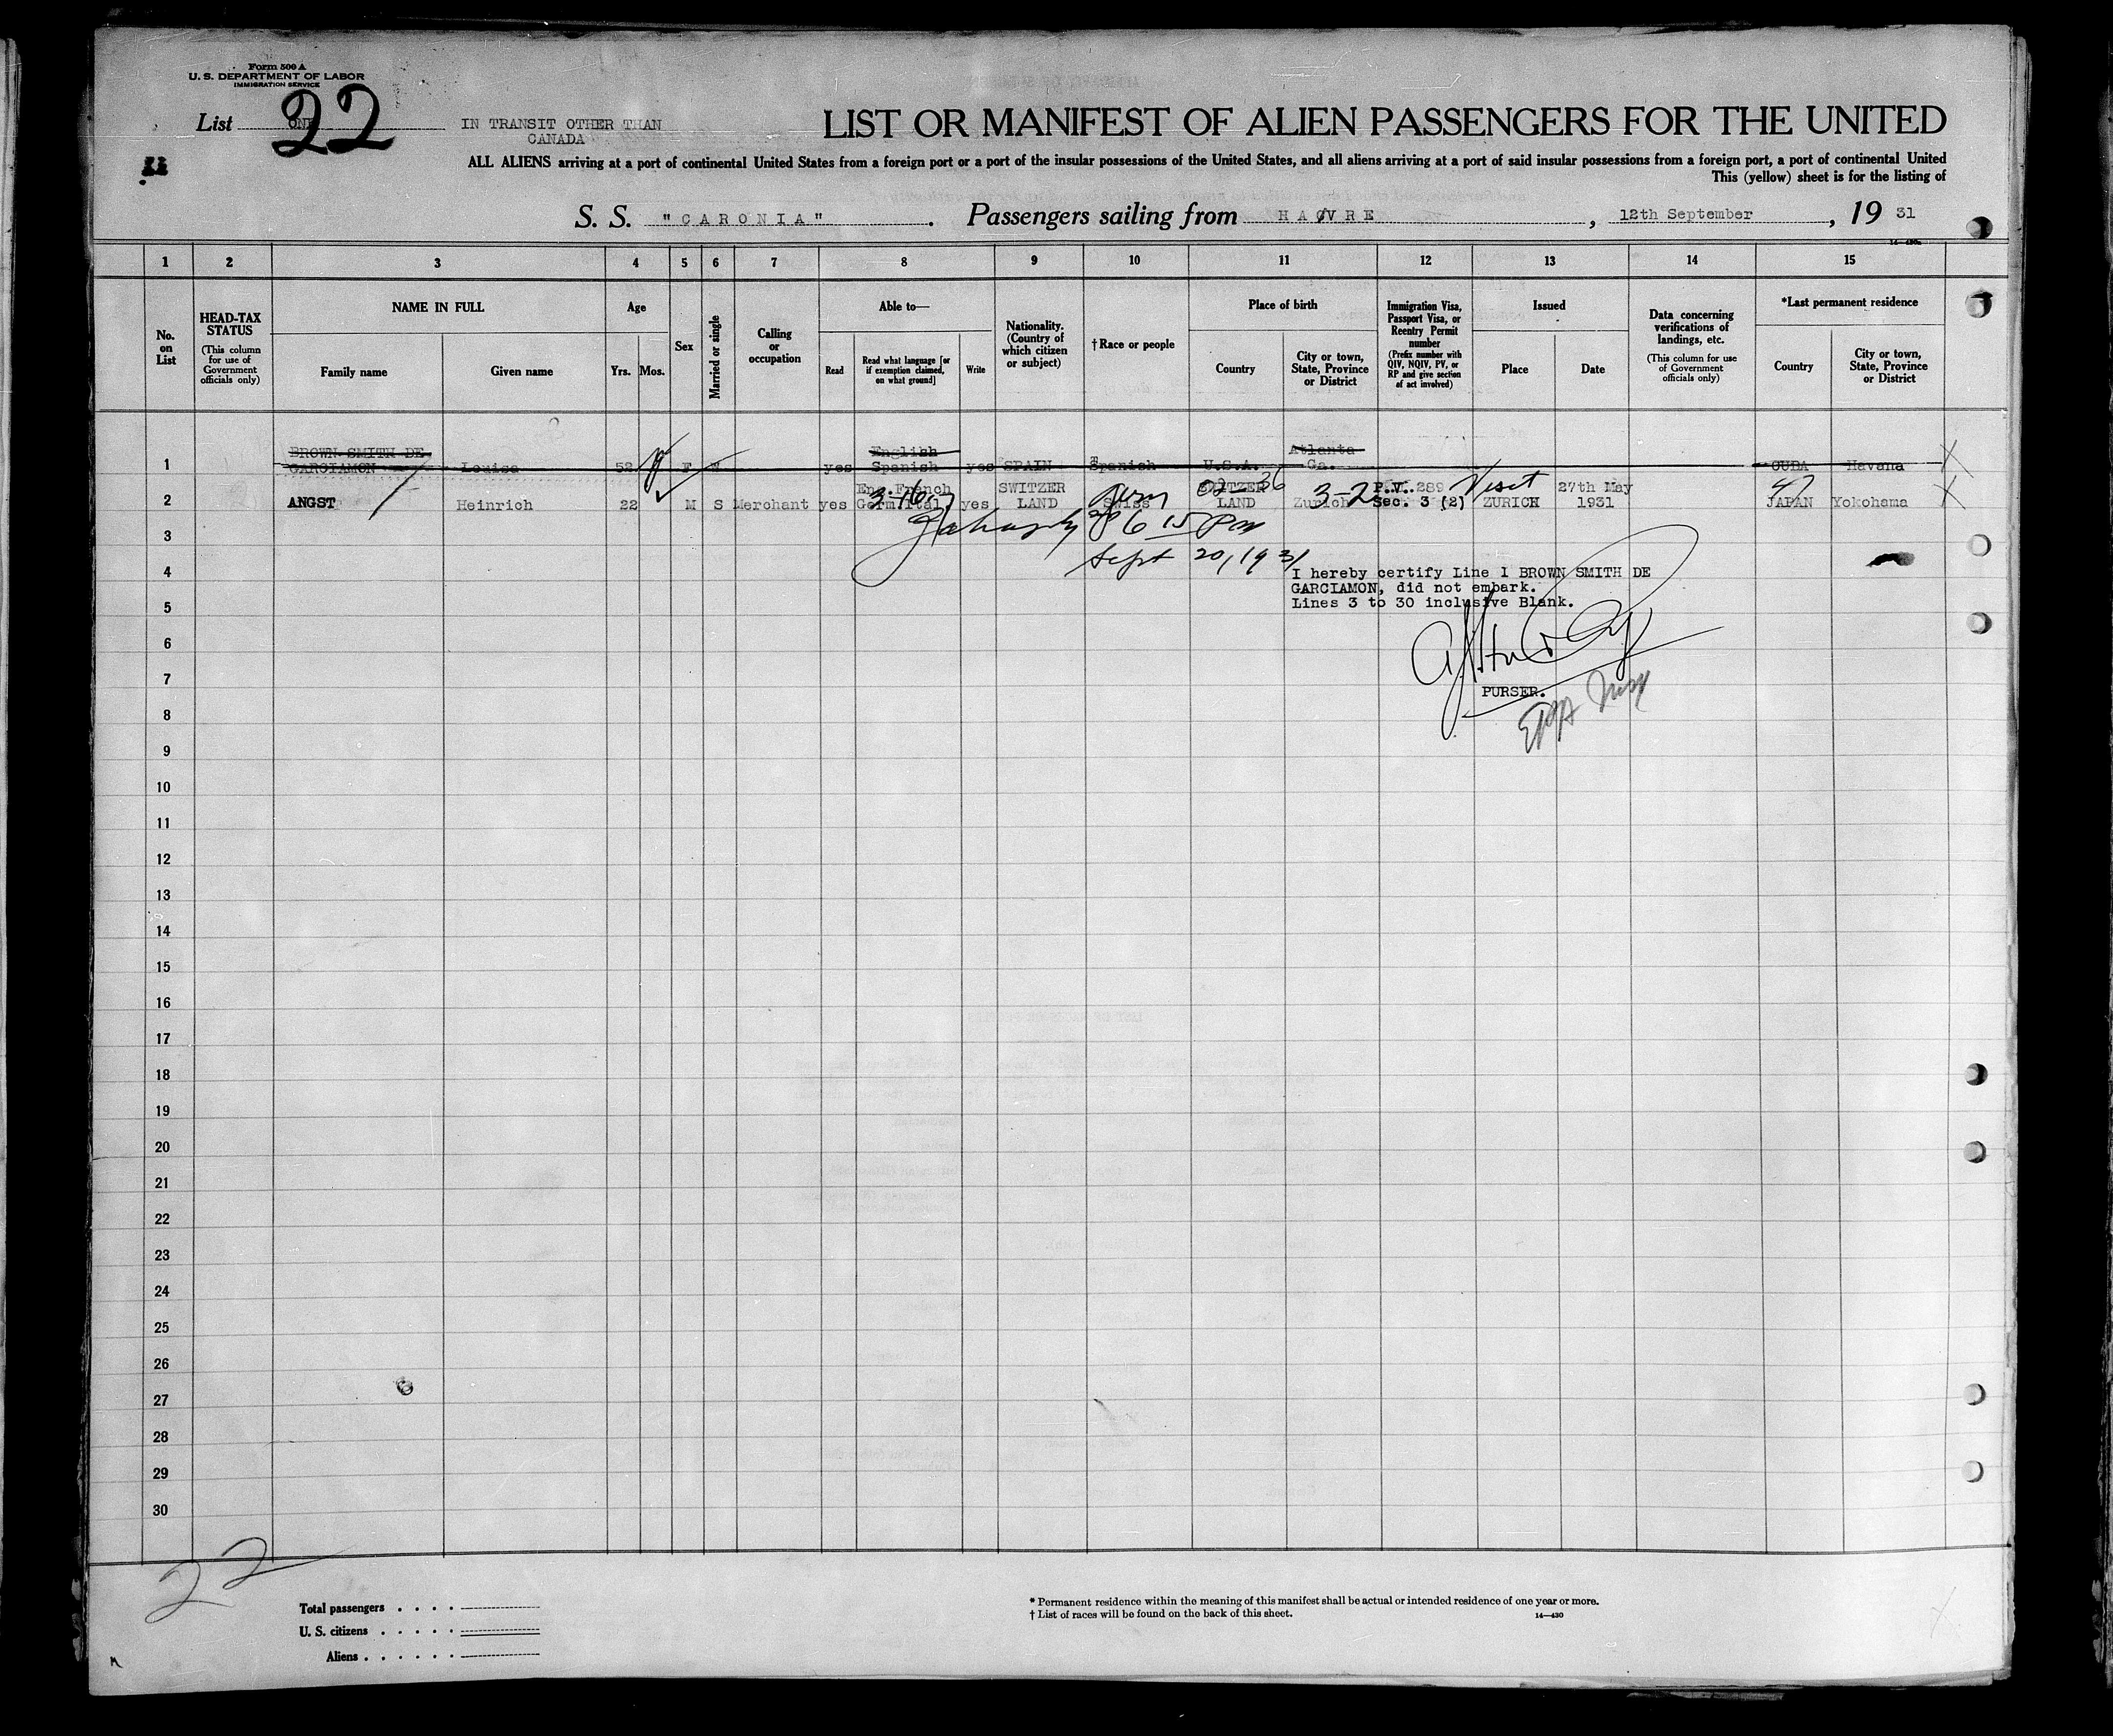 Form 500 A
U. S. DEPARTMENT OF LABOR
IMMIGRATION SERVICE
List ONE 22
IN TRANSIT OTHER THAN
CANADA
LIST OR MANIFEST OF ALIEN PASSENGERS FOR THE UNITED
ALL ALIENS arriving at a port of continental United States from a foreign port or a port of the insular possessions of the United States, and all aliens arriving at a port of said insular possessions from a foreign port, a port of continental United
This (yellow) sheet is for the listing of
S. S. "CARONIA". Passengers sailing from HAVRE, 12th September, 19 31
14—430a
1 2 3 4 5 6 7 8 9 10 11 12 13 14 15
No. on List
HEAD-TAX STATUS (This column for use of Government officials only)
NAME IN FULL
Family name
Given name
Age
Yrs. Mos.
Sex
Married or single
Calling or occupation
Able to—
Read
Read what language [or if exemption claimed, on what ground]
Write
Nationality. (Country of which citizen or subject)
†Race or people
Place of birth
Country
City or town, State, Province or District
Immigration Visa, Passport Visa, or Reentry Permit number (Prefix number with QIV, NQIV, PV, or RP and give section of act involved)
Issued
Place
Date
Data concerning verifications of landings, etc. (This column for use of Government officials only)
*Last permanent residence
Country
City or town, State, Province or District
1 BROWN SMITH DE GARCIAMON Louisa 52 F yes English Spanish yes SPAIN Spanish U.S.A. Atlanta Ga. CUBA Havana X
2 ANGST Heinrich 22 M S Merchant yes Eng. French Germ Ital. yes SWITZER LAND Swiss SWITZER LAND Zurich 3-2 P.V. 289 Sec. 3 (2) Visit ZURICH 27th May 1931 JAPAN Yokohama X
3 6 15 Pm
Sept 20, 1931
4 I hereby certify Line 1 BROWN SMITH DE
GARCIAMON, did not embark.
5 Lines 3 to 30 inclusive Blank.
6
7
PURSER.
8
9
10
11
12
13
14
15
16
17
18
19
20
21
22
23
24
25
26
27
28
29
30
22
Total passengers . . . .
U. S. citizens . . . . .
Aliens . . . . . .
* Permanent residence within the meaning of this manifest shall be actual or intended residence of one year or more.
† List of races will be found on the back of this sheet.
14—430